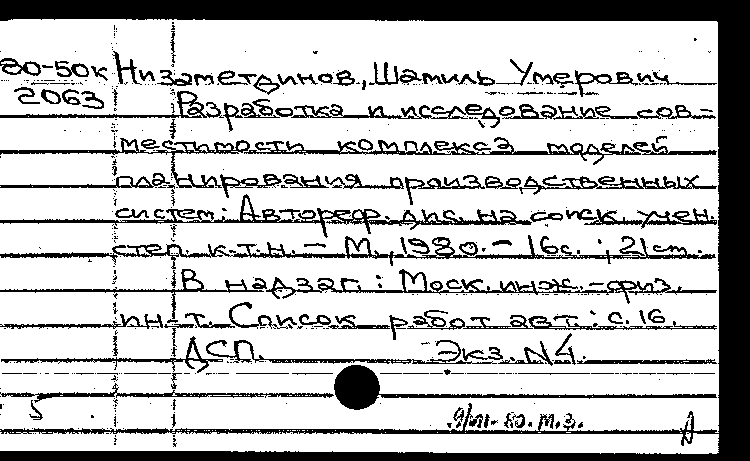 80-50к Низаметдинов, Шамиль Умерович
2063 Разработка и исследование сов-
местимости комплекса моделей
планирования производственных
систем: Автореф. дис. на соиск. учен.
степ. к.т.н. – М., 1980. – 16с. ; 21см.
В надзаг.: Моск. инж.-физ.
ин-т. Список работ авт.: с. 16.
ДСП. Экз. N4.
5 9/VII-80. м.з. А